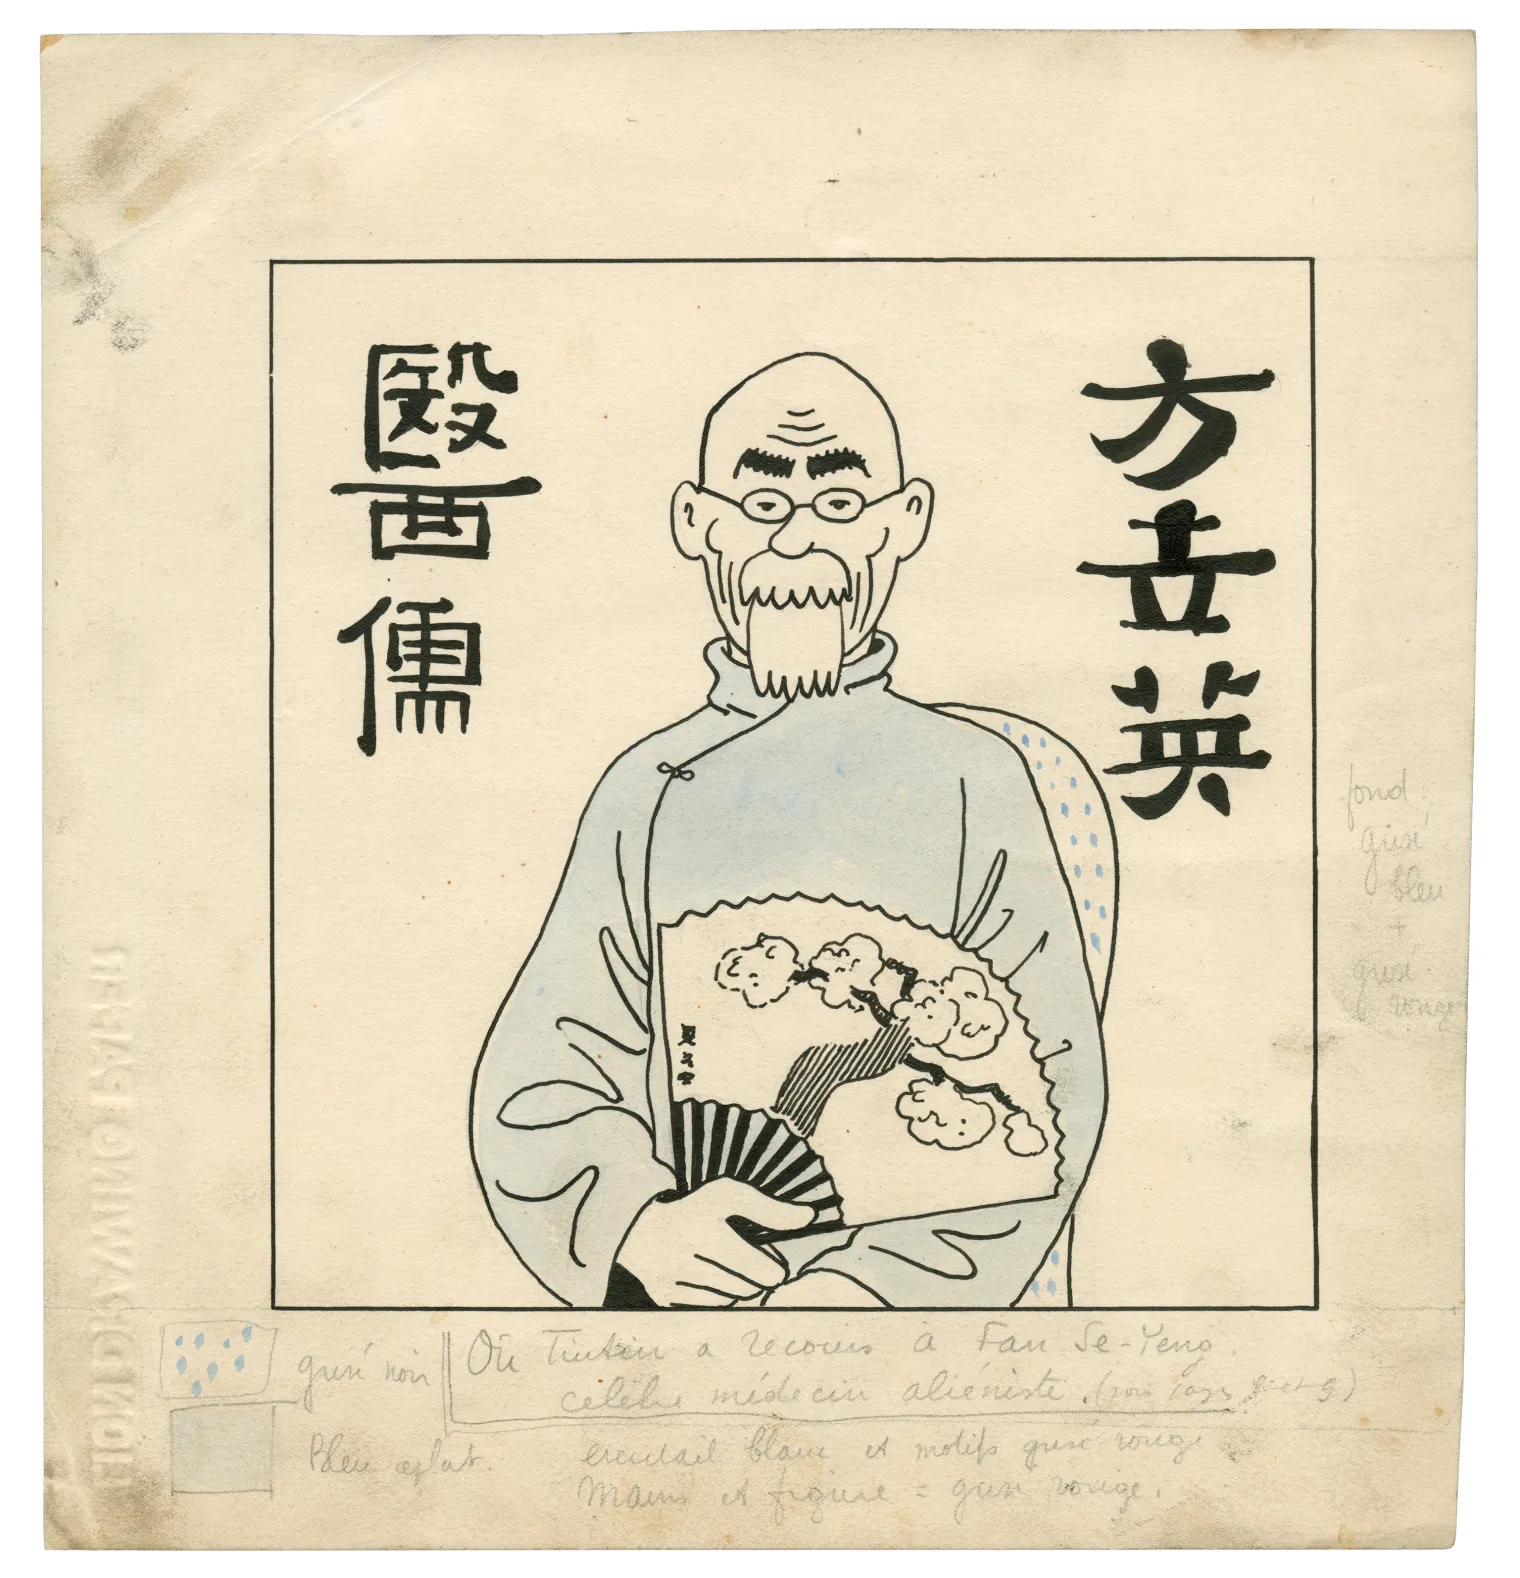 方世英
醫儒
fond :
grisé
bleu
+
grisé
rouge
grisé noir
Où Tintin a recours à Fan Se-Yeng.
célèbre médecin aliéniste. (voir et 9)
Bleu aplat.
eventail blanc et motifs grisé rouge
Mains et figure = grisé rouge.